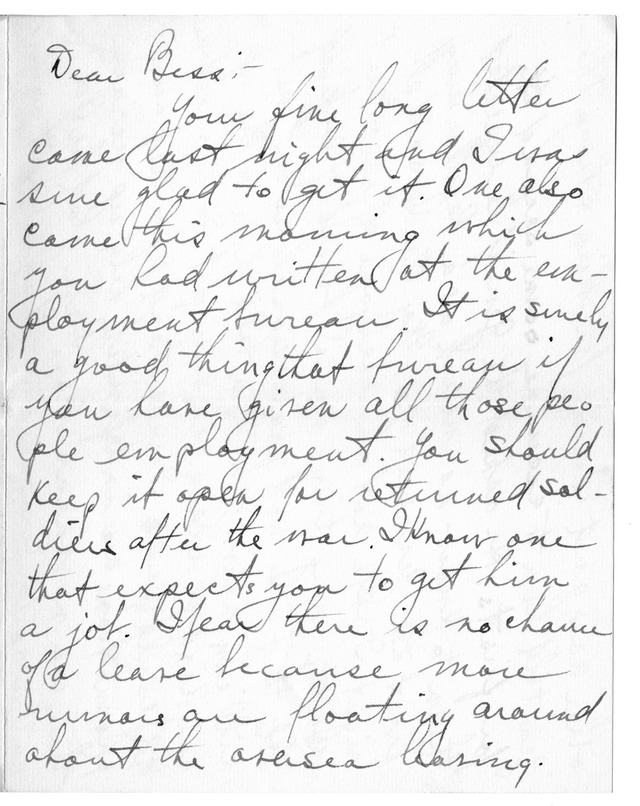 Dear Bess:-
Your fine long letter
came last night and I was
sure glad to get it. One also
came this morning which
you had written at the em-
ployment bureau. It is surely
a good thing that bureau if
you have given all those peo
ple employment. You should
keep it open for returned sol-
diers after the war. I know one
that expects you to get him
a job. I fear there is no chance
of a leave because more
rumors are floating around
about the oversea leaving.